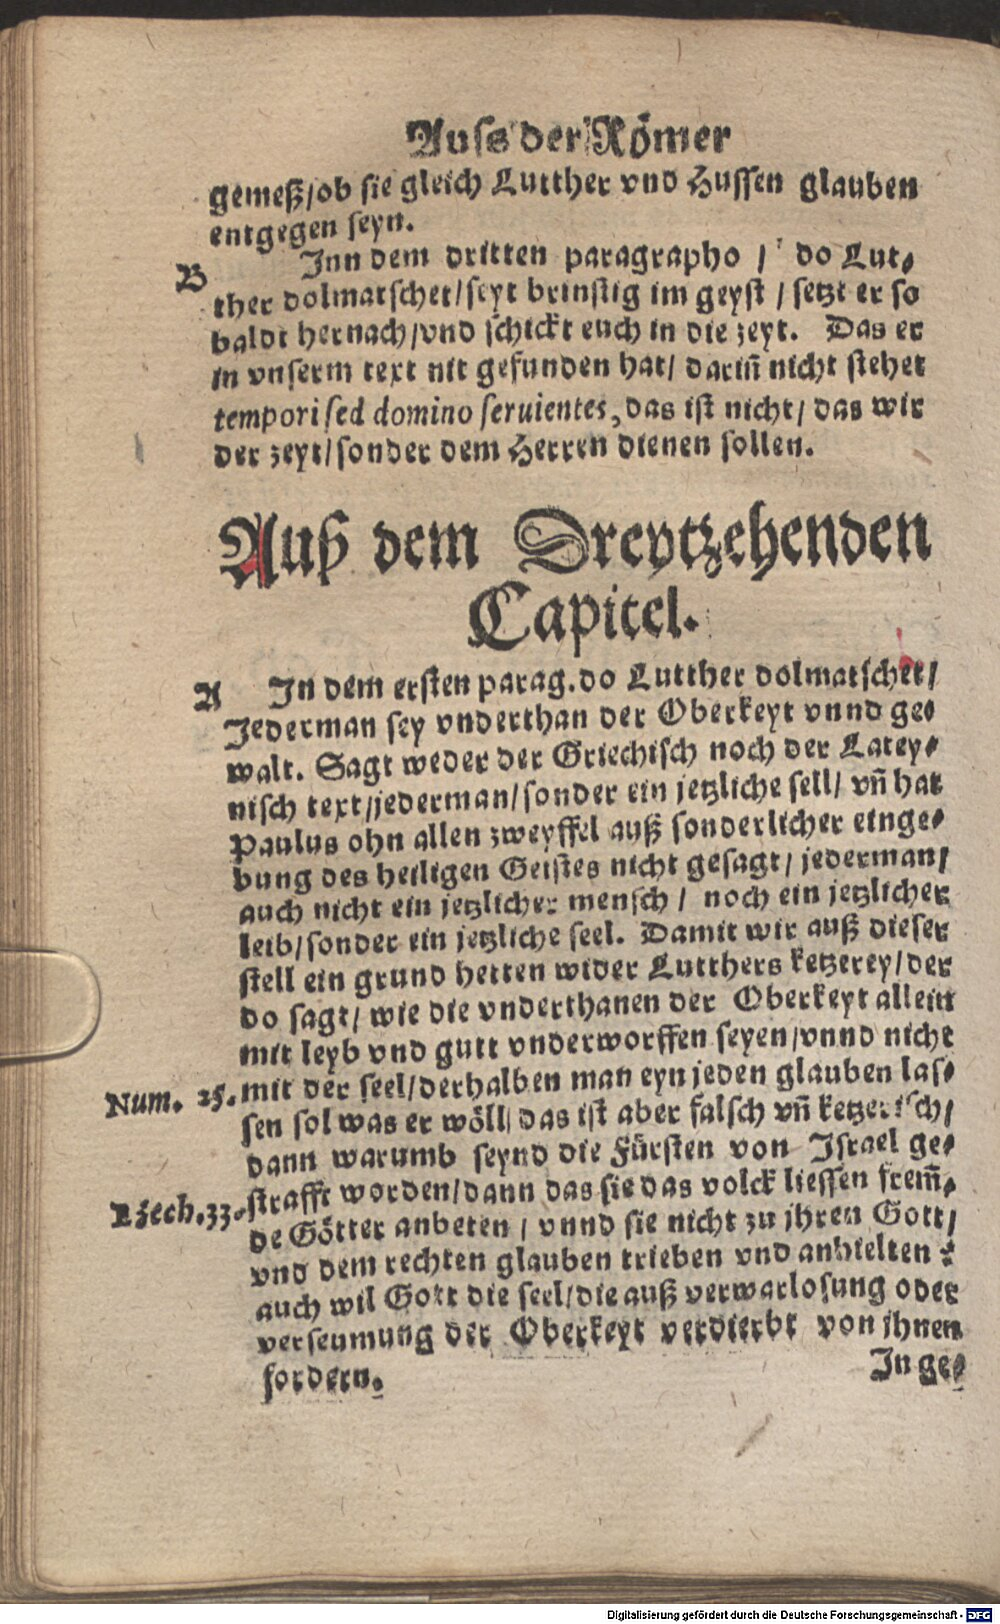 Auss der Römer
gemeß/ob sie gleich Lutther vnd Hussen glauben
entgegen seyn.
B Inn dem dritten paragrapho / do Lut⸗
ther dolmatschet/seyt brinstig im geyst / setzt er so
baldt hernach/vnd schickt euch in die zeyt. Das er
in vnserm text nit gefunden hat/ dariñ nicht stehet
tempori sed domino seruientes, das ist nicht/ das wir
der zeyt/sonder dem Herren dienen sollen.
Auß dem Dreytzehenden
Capitel.
A In dem ersten parag. do Lutther dolmatschet/
Jederman sey vnderthan der Oberkeyt vnnd ge⸗
walt. Sagt weder der Griechisch noch der Latey⸗
nisch text/jederman/sonder ein jetzliche sell/ vñ hat
Paulus ohn allen zweyffel auß sonderlicher einge⸗
bung des heiligen Geistes nicht gesagt/ jederman/
auch nicht ein jetzlicher mensch / noch ein jetzlicher
leib/sonder ein jetzliche seel. Damit wir auß dieser
stell ein grund hetten wider Lutthers ketzerey/der
do sagt/ wie die vnderthanen der Oberkeyt allein
mit leyb vnd gutt vnderworffen seyen/vnnd nicht
Num. 25. mit der seel/derhalben man eyn jeden glauben las⸗
sen sol was er wöll/das ist aber falsch vñ ketzerisch/
dann warumb seynd die Fürsten von Israel ge⸗
Ezech.33. strafft worden/dann das sie das volck liessen frem̃⸗
de Götter anbeten / vnnd sie nicht zu ihren Gott/
vnd dem rechten glauben trieben vnd anhielten ?
auch wil Gott die seel/die auß verwarlosung oder
verseumung der Oberkeyt verdierbt von ihnen
fordern. In ge⸗
Digitalisierung gefördert durch die Deutsche Forschungsgemeinschaft - DFG